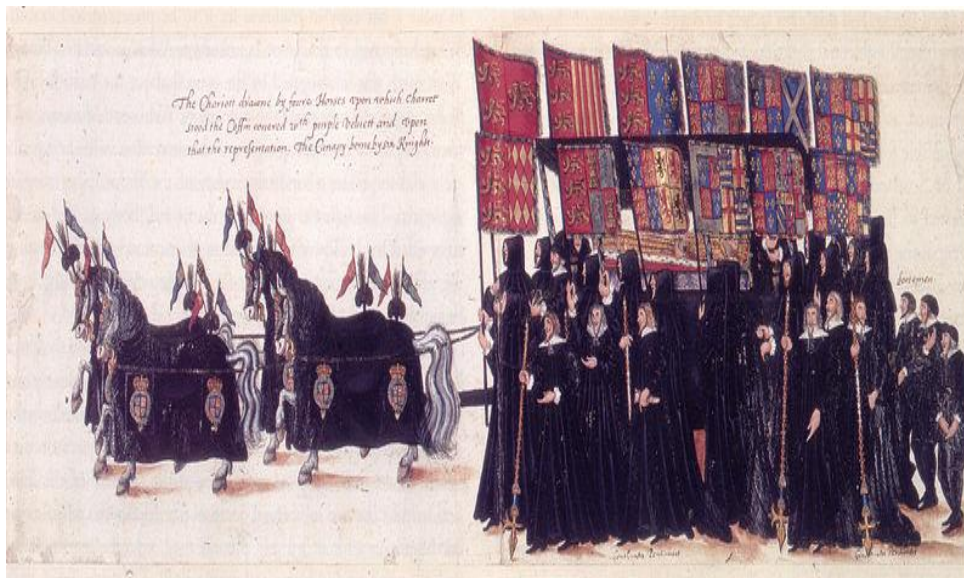 The Chariott drawne by foure Horses vpon which Charret
stood the Coffin couered wth purple Veluett and vpon
that the representation. The Canapy borne by six Knights.
footemen
Gentlemen Pensioners
Gentlemen Pensioners